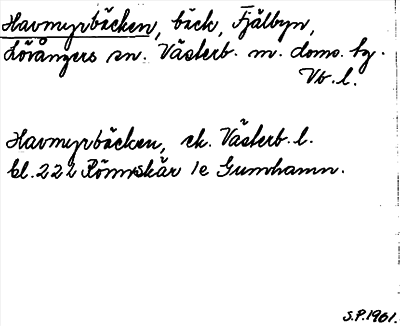 Havmyrbäcken, bäck, Fjälbyn,
Lövångers sn. Västerb. m. doms. bg.
Vb. l.
Havmyrbäcken, ek. Västerb. l.
bl. 222 Rönnskär 1e Gumhamn.
S.P. 1961.